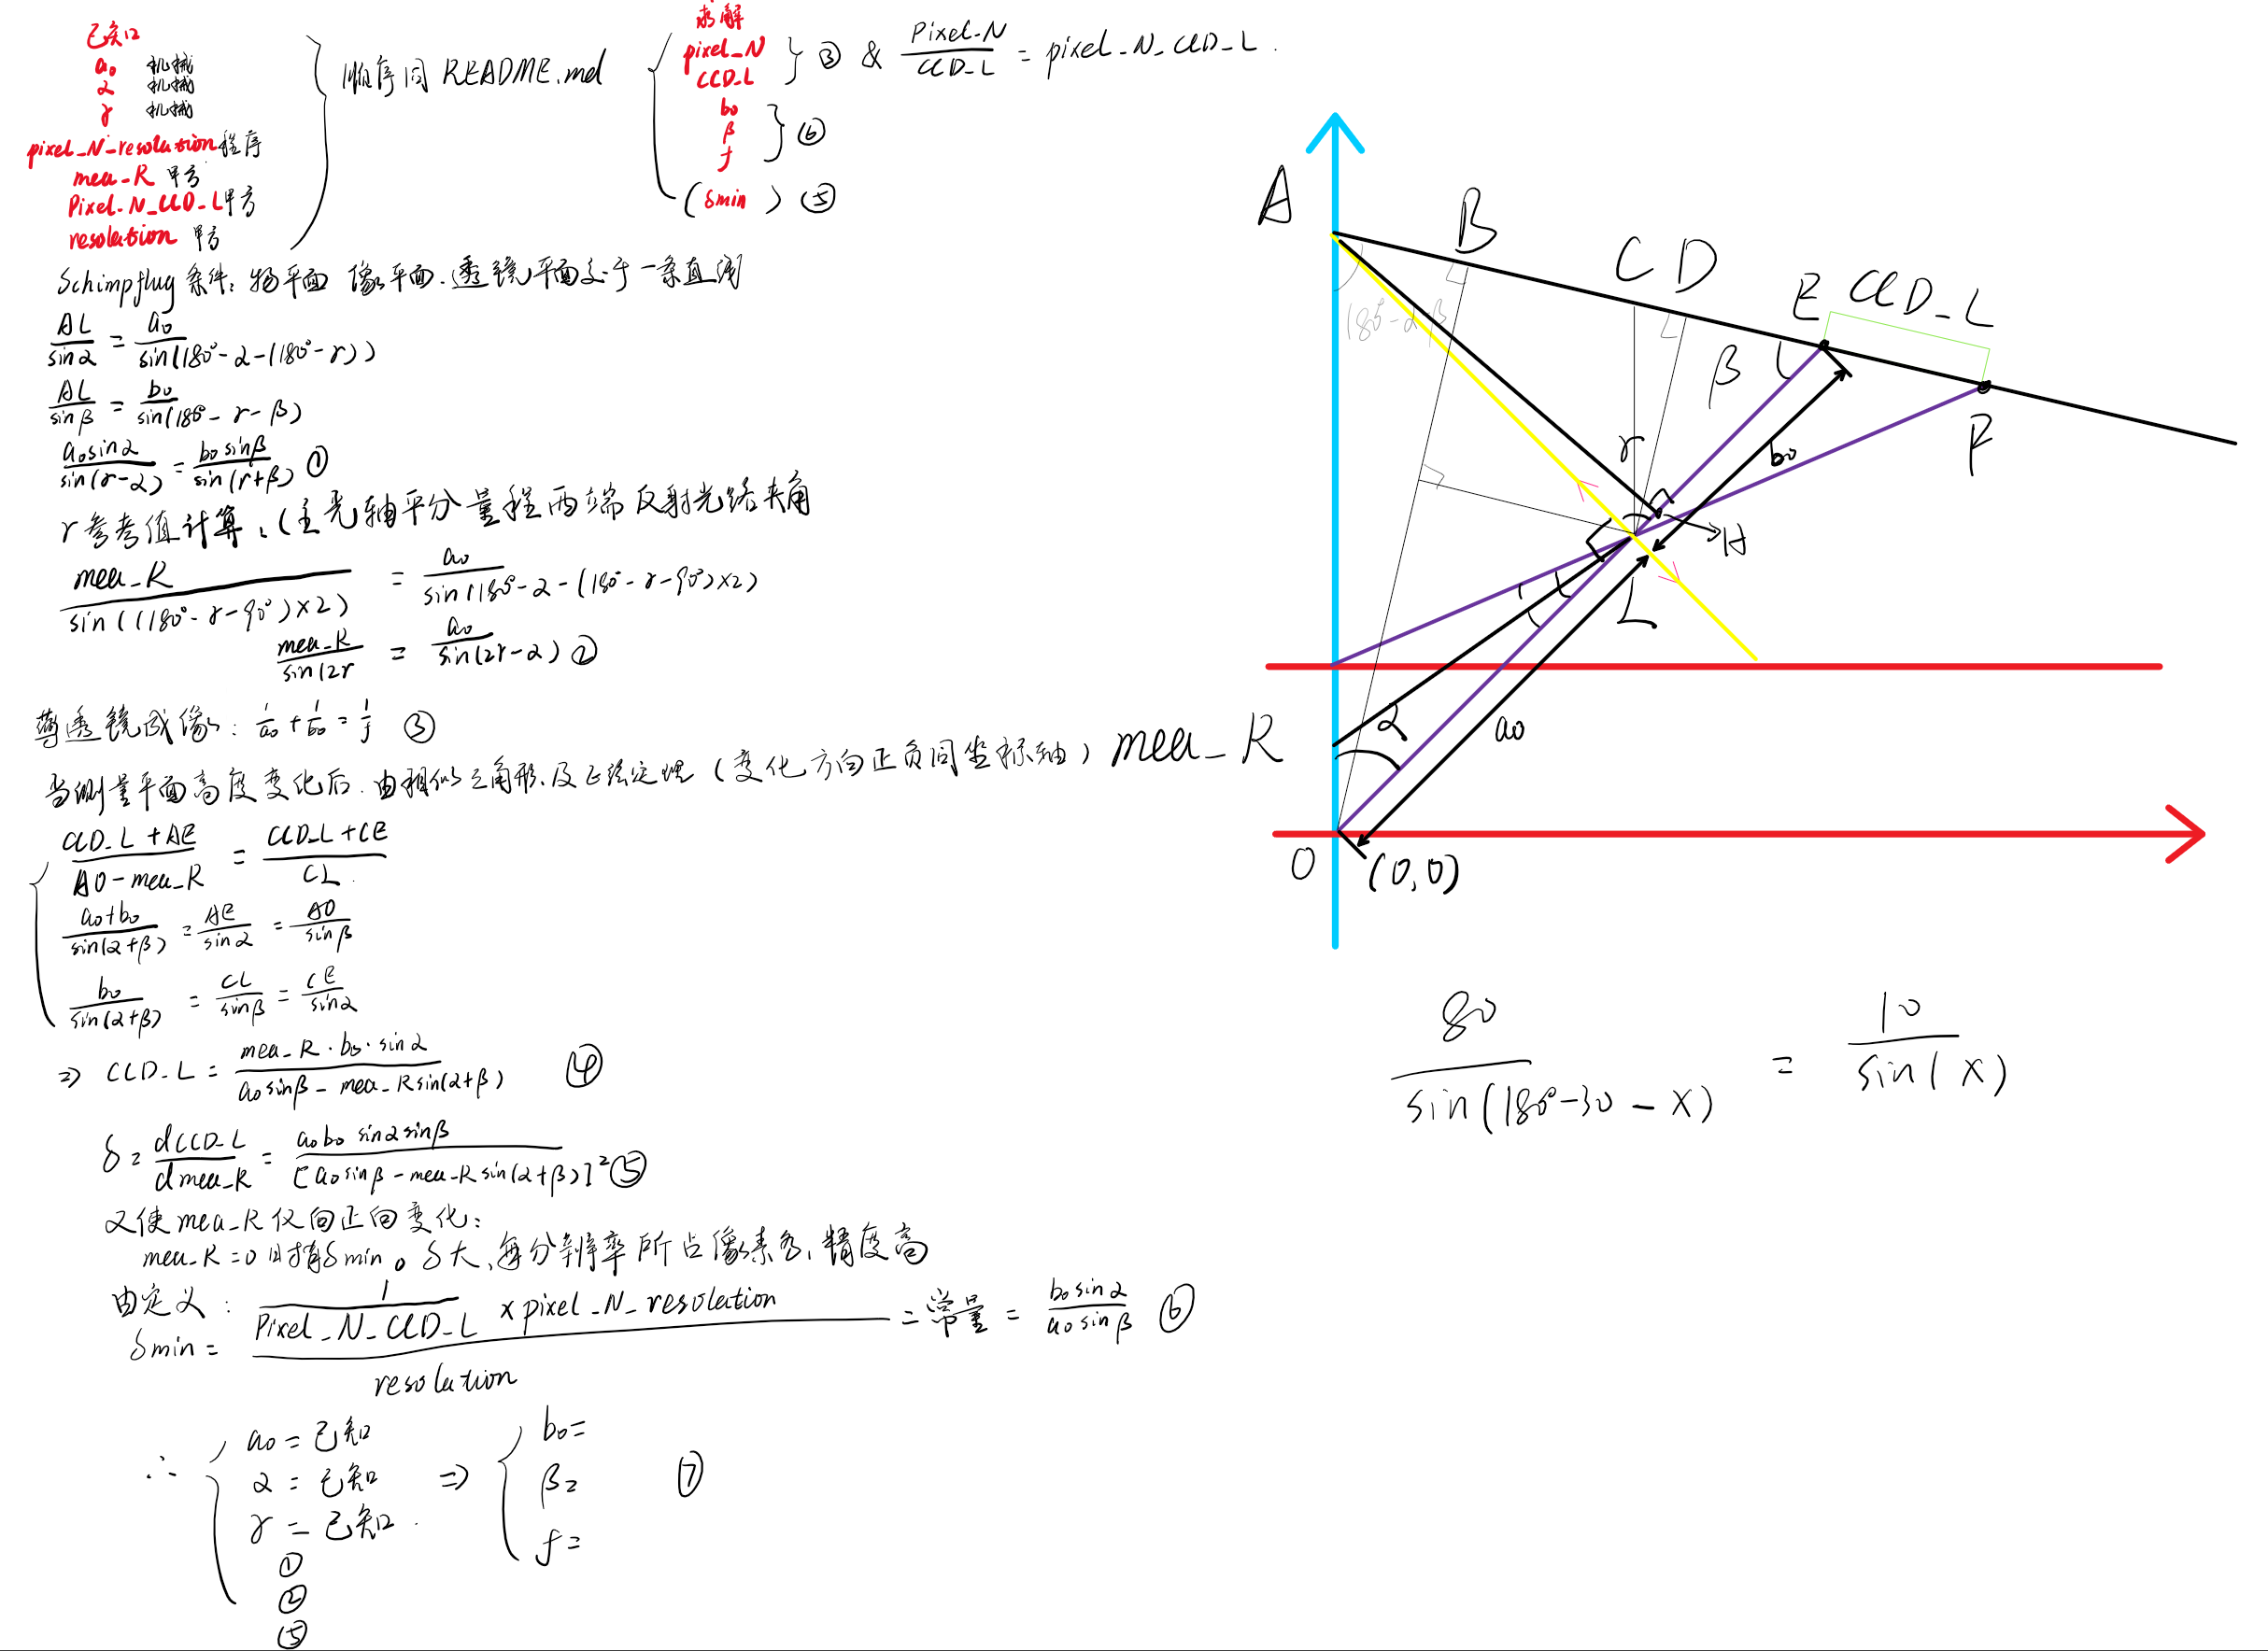 已知
a₀ 机械
α 机械
γ 机械
pixel_N_resolution 程序
mea_R 甲方
Pixel_N_CCD_L 甲方
resolution 甲方
顺序同 README.md
求解
pixel_N
CCD_L
③ & Pixel_N / CCD_L = pixel_N_CCD_L.
b₀
β
f
⑥
(δmin) ⑤
Schimpflug 条件: 物平面 像平面.透镜平面交于一条直线
AL / sinα = a₀ / sin(180°-α-(180°-γ))
AL / sinβ = b₀ / sin(180°-γ-β)
a₀sinα / sin(γ-α) = b₀sinβ / sin(γ+β) ①
γ参考值计算:(主光轴平分量程两端反射光络夹角
mea_R / sin((180°-γ-90°)×2) = a₀ / sin(180°-α-(180°-γ-90°)×2)
mea_R / sin(2γ = a₀ / sin(2γ-α) ②
薄透镜成像: 1/a₀ + 1/b₀ = 1/f ③
当测量平面高度变化后.由相似三角形.及正弦定理(变化方向正负同坐标轴)
CCD_L+AE / AO-mea_R = CCD_L+CE / CL.
a₀+b₀ / sin(α+β) = AE / sinα = AO / sinβ
b₀ / sin(α+β) = CL / sinβ = CE / sinα
⇒ CCD_L = mea_R·b₀·sinα / a₀sinβ - mea_R sin(α+β) ④
δ = dCCD_L / dmea_R = a₀b₀ sinα sinβ / [a₀sinβ-mea_R sin(α+β)]² ⑤
又使 mea_R 仅向正向变化:
mea_R=0时有δmin。δ大、每分辨率所占像素多,精度高
由定义: δmin = 1 / Pixel_N_CCD_L × pixel_N_resolution / resolution = 常量 = b₀sinα / a₀sinβ ⑥
∴ a₀=已知
α=已知
γ=已知.
①
②
⑤
⇒ b₀=
β=
f=
⑦
A
B
C D
E CCD_L
180°-α-β
β
F
γ
b₀
H
L
α
a₀
mea_R
O (0,0)
80 / sin(180°-30-x) = 10 / sin(x)